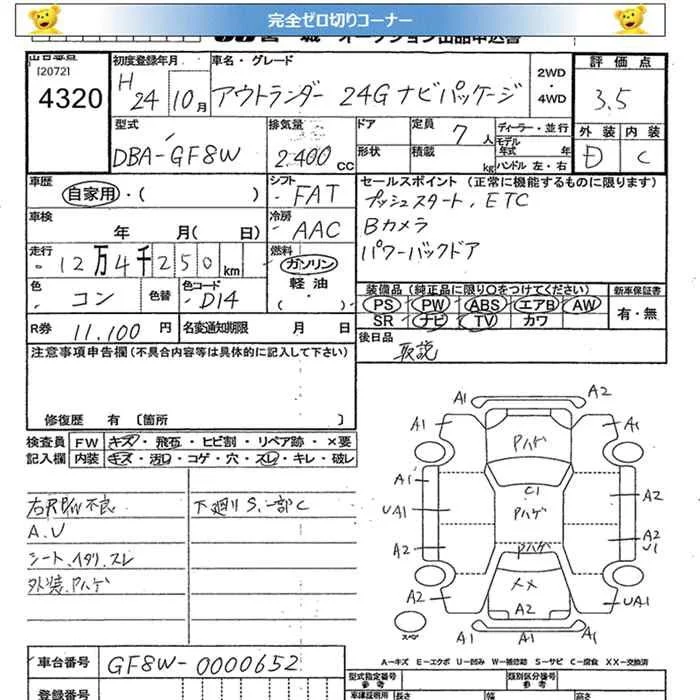 完全ゼロ切りコーナー
宮城 オークション出品申込書
[2072]
4320
初度登録年月
H 24 10月
車名・グレード
アウトランダー 24G ナビパッケージ
2WD ・ 4WD
評価点
3.5
外装 内装
D C
型式
DBA-GF8W
排気量
2.400 CC
ドア 定員 7 人
形状 積載 kg
ディーラー・並行
モデル年式 年
ハンドル 左・右
車歴
自家用・( )
シフト
FAT
セールスポイント (正常に機能するものに限ります)
プッシュスタート, ETC
Bカメラ
パワーバックドア
車検
年 月( 日)
冷房
AAC
走行
12万4千250km
燃料
ガソリン
軽油
・( )
色
コン
色替
色コード
D14
装備品 (純正品に限り〇をつけてください)
PS PW ABS エアB AW
SR ナビ TV カワ
新車保証書
有・無
R券 11.100 円
名変通知期限 月 日
後日品
取説
注意事項申告欄(不具合内容等は具体的に記入して下さい)
修復歴 有 〔箇所 〕
検査員記入欄
FW キズ・飛石・ヒビ割・リペア跡・×要
内装 キズ・汚れ・コゲ・穴・スレ・キレ・破レ
下廻りS.一部C
A.U
シート.イタリ.スレ
外装.Pハゲ
A1 A2
A1 A1
Pハゲ
A1 C1 A2
UA1 Pハゲ
A2 Pハゲ A2 U1
A2 XX UA1
A2
A1 A1
スペア
A－キズ E－エクボ U－凹み W－補修跡 S－サビ C－腐食 XX－交換済
車台番号
GF8W-0000652
登録番号
型式指定番号 参考
類別区分番号 参考
車検証明用 参考 長さ 幅 高さ